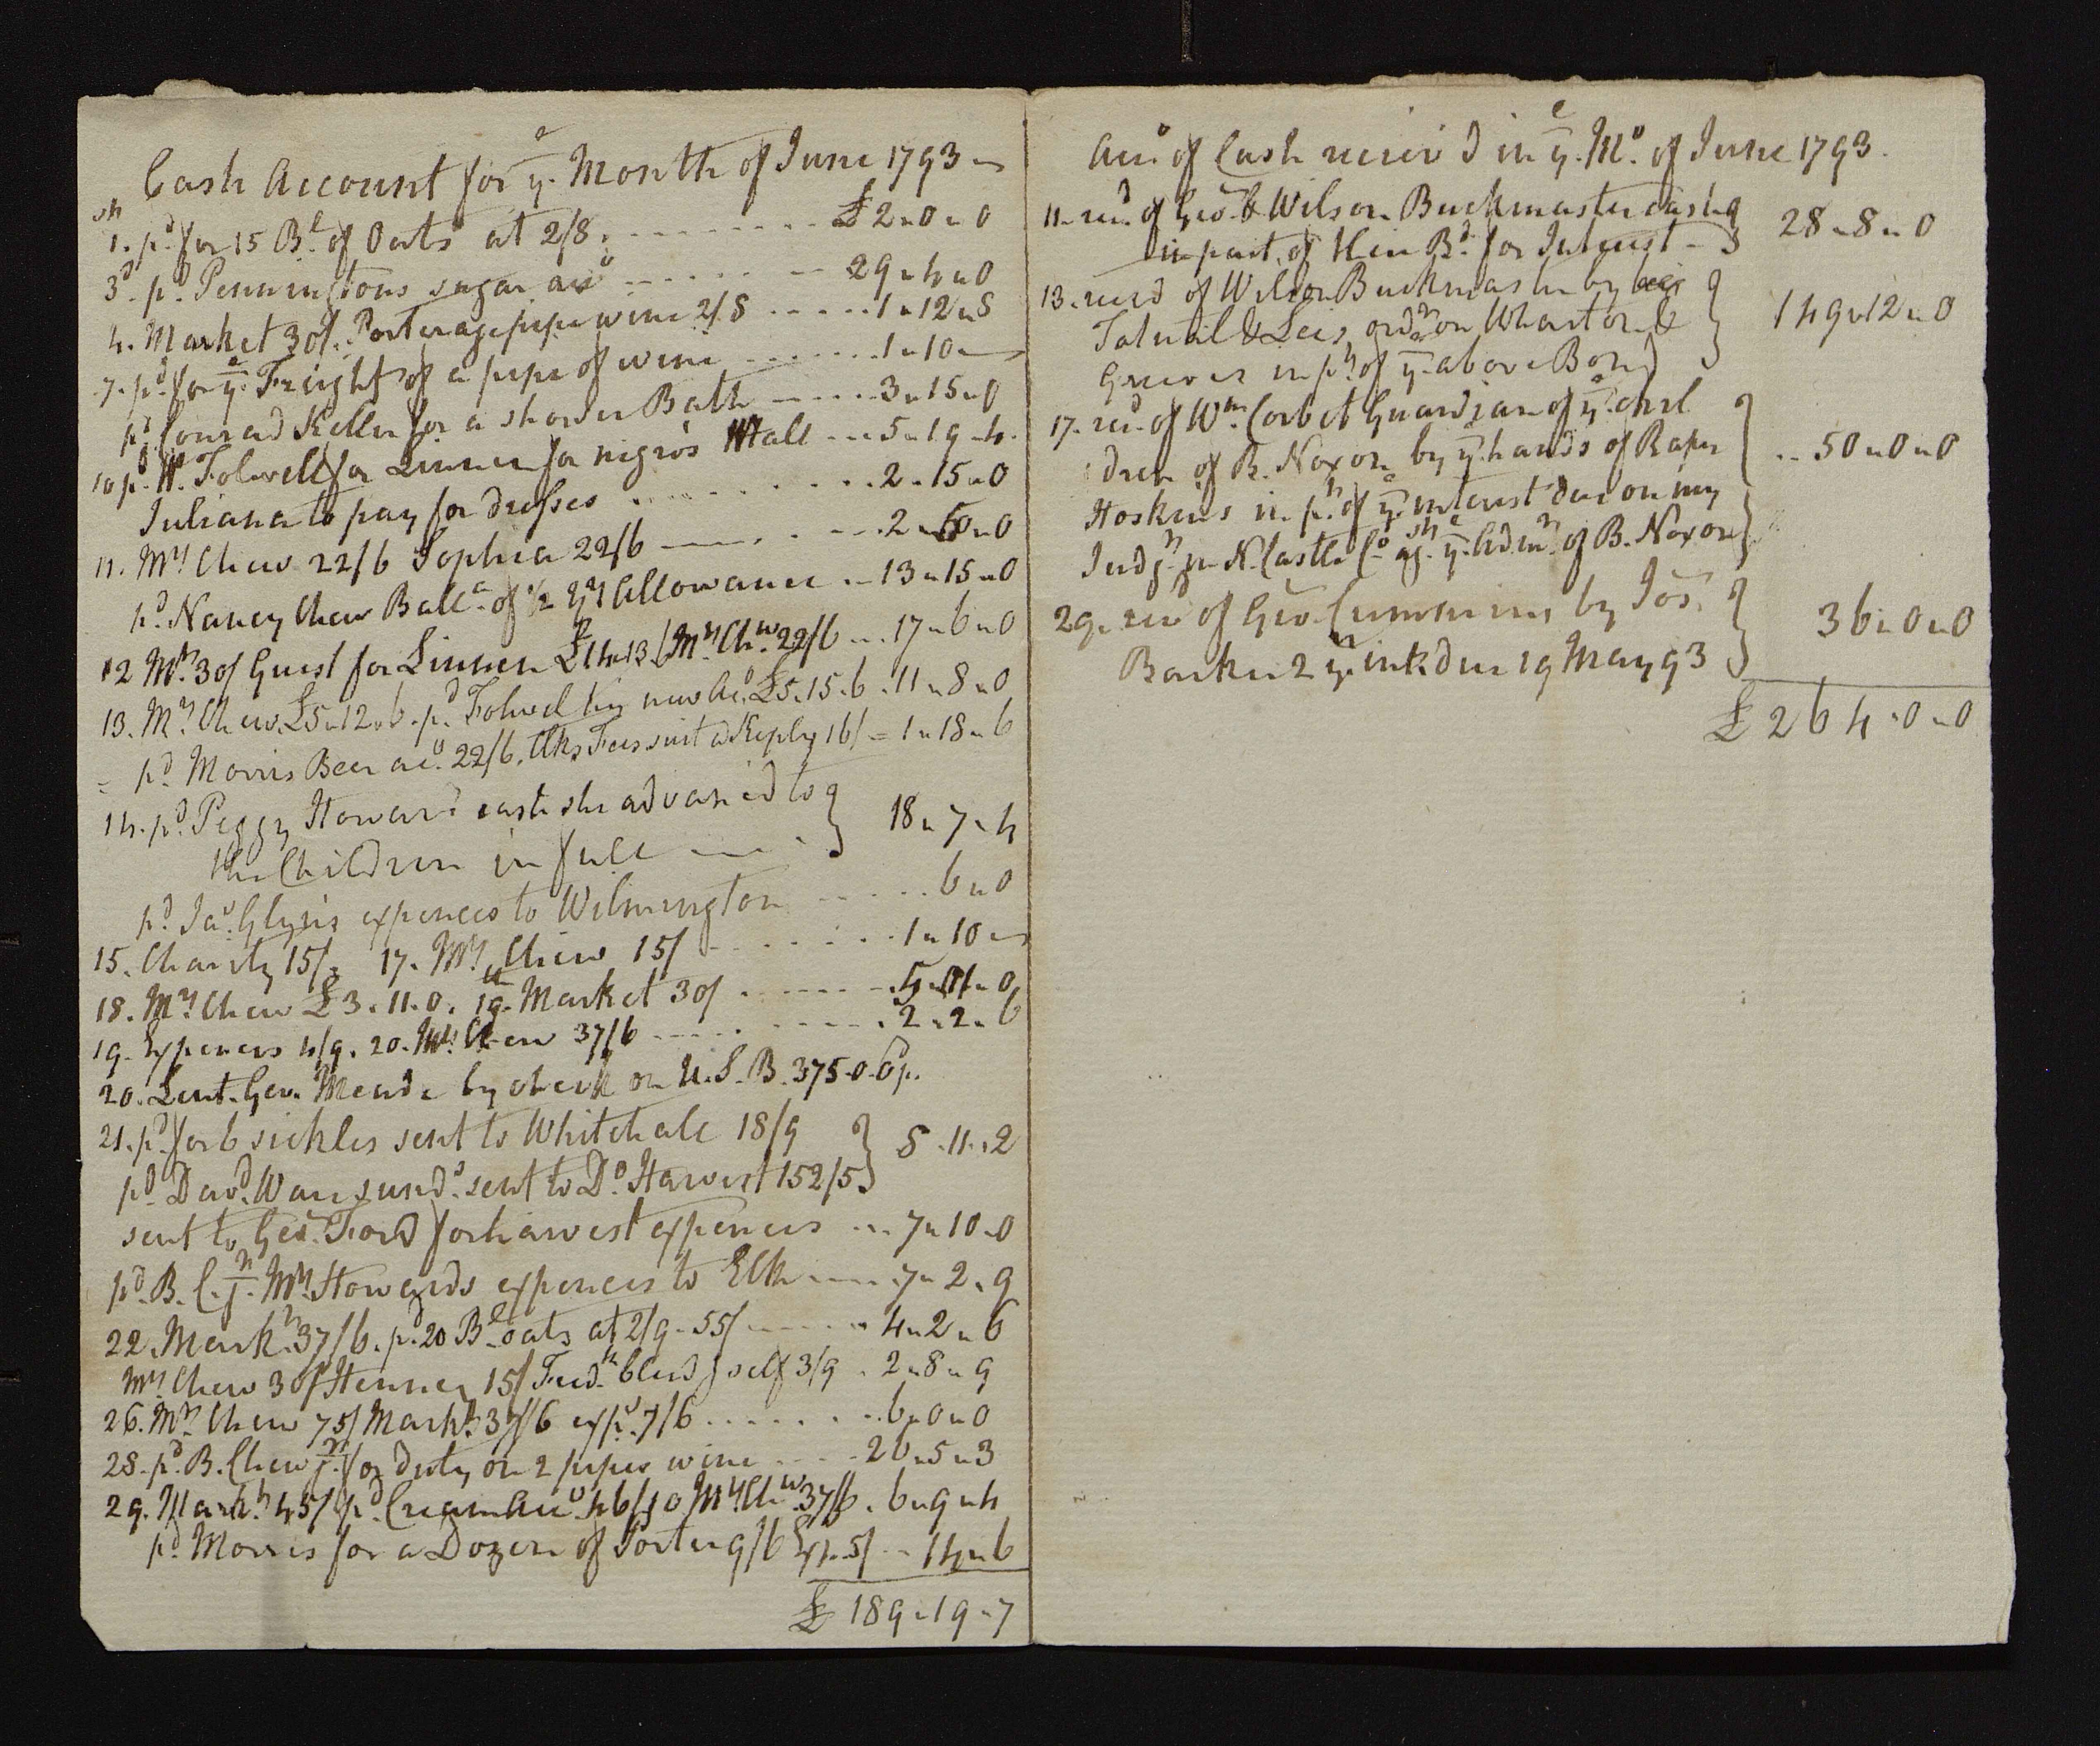 Cash Account for ye Month of June 1793
1st. pd for 15 Bl of Oats at 2/8 £2"0"0
3d. pd Penningtons sugar accо 29"4"0
4. Market 30/. Porterage pipe wine 2/8 1"12"8
7. pd for ye Freight of a pipe of wine 1"10"
pd Conrad Keller for a shower Bath 3"15"0
10 pd W. Folwell for Linnen for nigros Whall 5"19"4
Juliana to pay for dresses 2"15"0
11. Mrs Chew 22/6 Sophia 22/6 2"5"0
pd Nancy Chew Ballce of 1/2 Yrs Allowance 13"15"0
12 Mkt 30/ Guest for Linnen £14"13/6 Mrs Chw 22/6 17"6"0
13. Mrs Chew £5"12"6. pd Folwel new Acо £5.15.6 11"8"0
pd Morris Beer acо 22/6. Clks Fees suit Keply 16/ = 1"18"6
14. pd Peggy Howard cash she advanced to
the Children in full 18"7"4
pd Jaо Glyn's expences to Wilmington 6"0
15. Charity 15/. 17. Mrs Chew 15/ 1"10"
18. Mrs Chew £3.11.0. 19th Market 30/ 5"1"0
19. Expences 4/9. 20. Mrs Chew 37/6 2"2"6
20. Lent. Geo. Meade by check on U.S.B. 375-0-0 p.
21. pd for 6 sickles sent to Whitehall 18/9
pd Davd Ware sunds sent to Do Harvest 152/5 8"11"2
sent to Geo Ford for harvest expences 7"10"0
pd B.C. jr Mrs Howards expences to Elk 7"2"9
22. Markt 37/6. pd 20 Bl oats at 2/9 - 55/ 4"2"6
Mrs Chew 30/ Henney 15/ self 3/9 2"8"9
26. Mrs Chew 75/ Markt 37/6 exps 7/6 6"0"0
28. pd B. Chew jr for duty on 2 pipes wine 20"5"3
29. Markt 45/ pd Cream Accо 46/10 Mrs Chw 37/6 6"9"4
pd Morris for a Dozen of Porter 9/6 Ex. 5/ 14"6
£189"19"7
Accо of Cash receiv'd in ye Mо of June 1793.
11. recd of Geo & Wilson Buckmaster cash
in part of their Bd for Interest 28"8"0
13. recd of Wilson Buckmaster by
Tatnal & Lees ordr on Wharton &
Greeves in pt of ye above Bond 149"12"0
17. recd of Wm Corbet Guardian of ye chil
dren of B. Noxon by ye hands of Raper
Hoskins in pt of ye interest due on my
Judgt in N. Castle Co agst ye Admr of B. Noxon 50"0"0
29. recd of Geo Cummins by Jos.
Barker 2 yrs int. due 19 May 93 36"0"0
£264"0"0